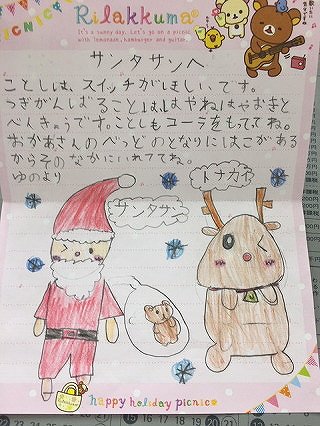 PICNIC
Rilakkuma
It's a sunny day. Let's go on a picnic
with lemonade, hamburger and guitar.
サンタサンへ
ことしは、スイッチがほしいです。
つぎがんばることは、はやねはやおきと
べんきょうです。ことしもコーラをもっててね。
おかあさんのべっどのとなりにはこがある
からそのなかにいれててね。
ゆのより
サンタサン
トナカイ
happy holiday picnic